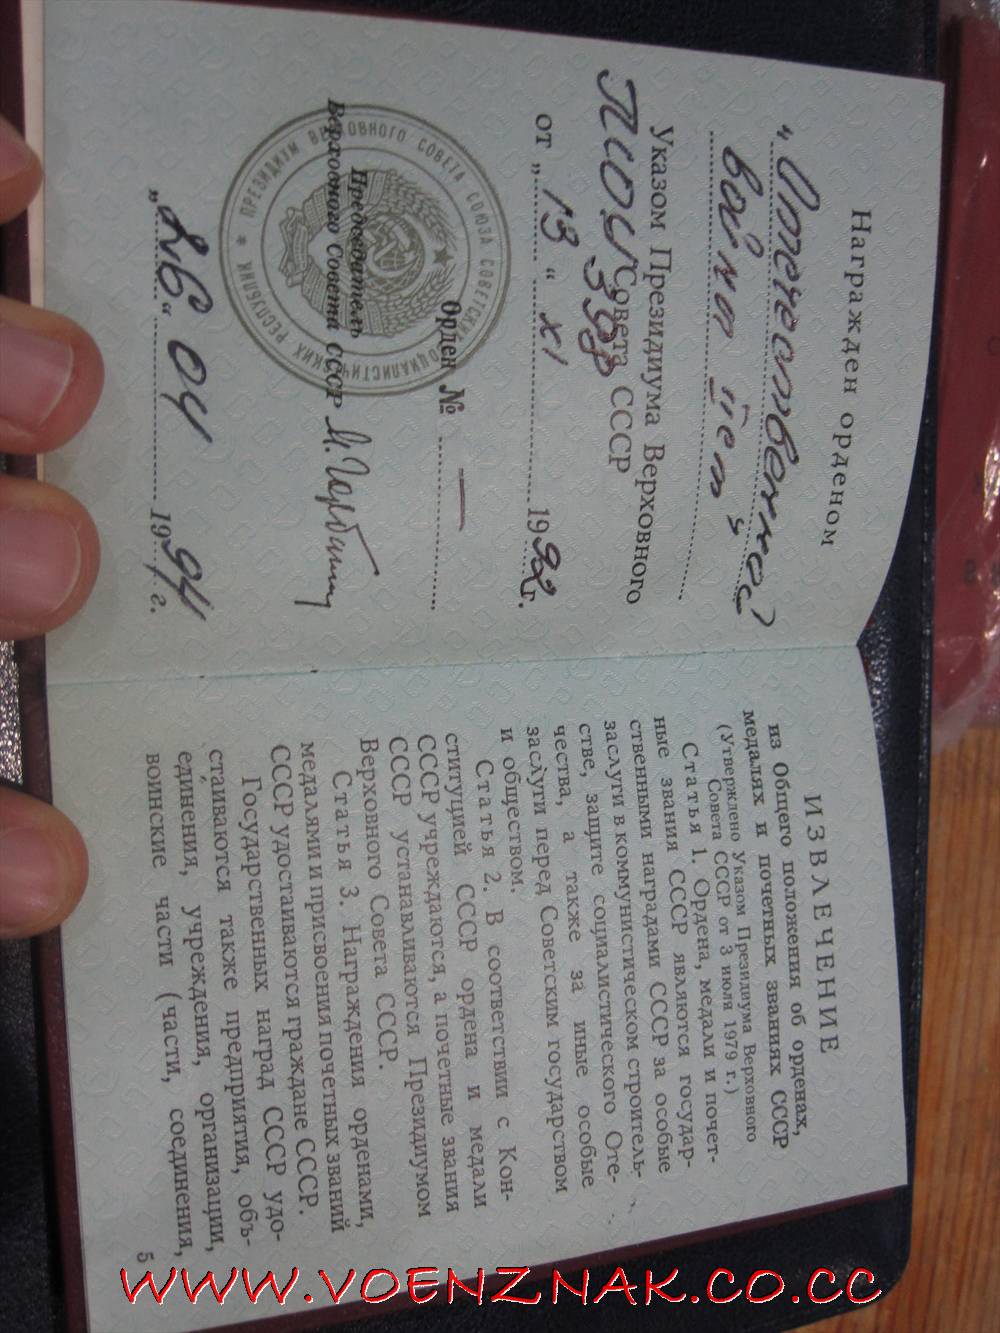 Награжден орденом
„Отечественной
войны II ст.“
Указом Президиума Верховного
Совета СССР
398
от „ 13 “ XI 1992 г.
Орден № —
Председатель
Верховного Совета СССР М. Горбачев
„26“ 04 1994 г.
ПРЕЗИДИУМ ВЕРХОВНОГО СОВЕТА СОЮЗА СОВЕТСКИХ СОЦИАЛИСТИЧЕСКИХ РЕСПУБЛИК
ИЗВЛЕЧЕНИЕ
из Общего положения об орденах,
медалях и почетных званиях СССР
(Утверждено Указом Президиума Верховного
Совета СССР от 3 июля 1979 г.)
Статья 1. Ордена, медали и почет-
ные звания СССР являются государ-
ственными наградами СССР за особые
заслуги в коммунистическом строитель-
стве, защите социалистического Оте-
чества, а также за иные особые
заслуги перед Советским государством
и обществом.
Статья 2. В соответствии с Кон-
ституцией СССР ордена и медали
СССР учреждаются, а почетные звания
СССР устанавливаются Президиумом
Верховного Совета СССР.
Статья 3. Награждения орденами,
медалями и присвоения почетных званий
СССР удостаиваются граждане СССР.
Государственных наград СССР удо-
стаиваются также предприятия, объ-
единения, учреждения, организации,
воинские части (части, соединения,
5
WWW.VOENZNAK.CO.CC